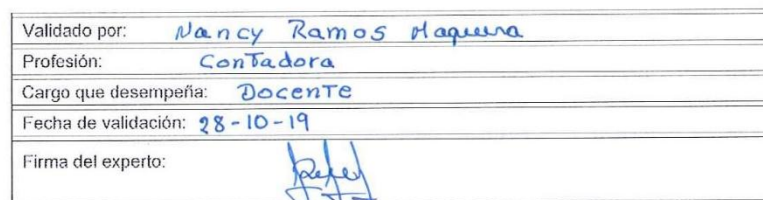 Validado por: Nancy Ramos Maquera
Profesión: Contadora
Cargo que desempeña: Docente
Fecha de validación: 28-10-19
Firma del experto: